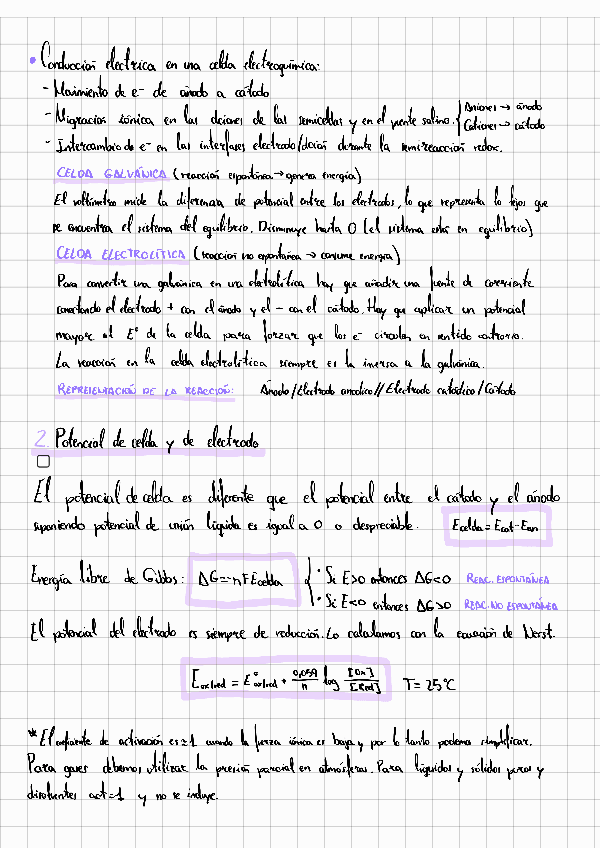 • Conducción electrica en una celda electroquímica:
- Movimiento de e⁻ de ánodo a cátodo
- Migración iónica en las diciones de las semiceldas y en el puente salino. { Aniones → ánodo
Cationes → cátodo
- Intercambio de e⁻ en las interfases electrodo/dición durante la semirreacción redox.
CELDA GALVÁNICA (reacción espontánea → genera energía)
El voltímetro mide la diferencia de potencial entre los electrodos, lo que representa lo lejos que
se encuentra el sistema del equilibrio. Disminuye hasta 0 (el sistema está en equilibrio)
CELDA ELECTROLÍTICA (reacción no espontánea → consume energía)
Para convertir una galvánica en una eletrolítica hay que añadir una fuente de corriente
conectando el electrodo + con el ánodo y el - con el cátodo. Hay que aplicar un potencial
mayor al E° de la celda para forzar que los e⁻ circulen en sentido contrario.
La reacción en la celda electrolítica siempre es la inversa a la galvánica.
REPRESENTACIÓN DE LA REACCIÓN: Ánodo/Electrodo anodico//Electrodo catódico/Cátodo
2. Potencial de celda y de electrodo
El potencial de celda es diferente que el potencial entre el cátodo y el ánodo
suponiendo potencial de unión líquida es igual a 0 o despreciable. Ecelda = Ecat - Ean
Energía libre de Gibbs: ΔG = -nFEcelda { • Si E>0 entonces ΔG<0 REAC. ESPONTÁNEA
• Si E<0 entonces ΔG>0 REAC. NO ESPONTÁNEA
El potencial del electrodo es siempre de reducción. Lo calculamos con la ecuación de Nerst.
Eox/red = E°ox/red + 0,059/n log [Ox]/[Red] T = 25°C
* El coeficiente de activación es ≈ 1 cuando la fuerza iónica es baja y por lo tanto podemos simplificar.
Para gases debemos utilizar la presión parcial en atmósferas. Para líquidos y sólidos puros y
disolventes act = 1 y no se incluye.